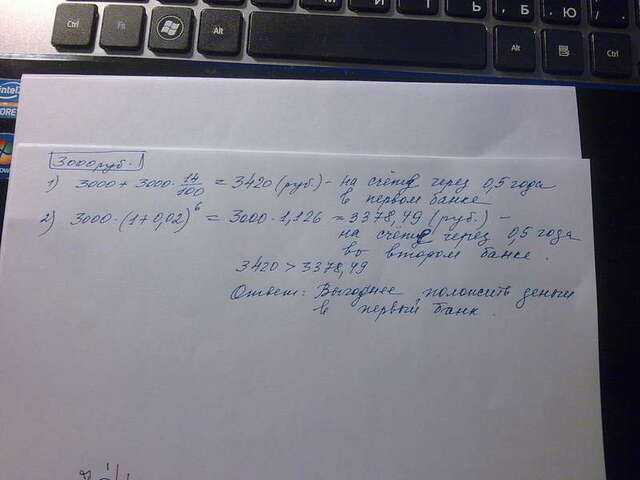 Ctrl
Fn
Alt
Alt
Ctrl
Б
Ю
intel
CORE
3000 руб.
1) 3000 + 3000 · 14/100 = 3420 (руб.) - на счёте через 0,5 года
в первом банке
2) 3000 · (1+0,02)^6 = 3000 · 1,126 = 3378,49 (руб.) -
на счёте через 0,5 года
во втором банке.
3420 > 3378,49
Ответ: Выгоднее положить деньги
в первый банк.